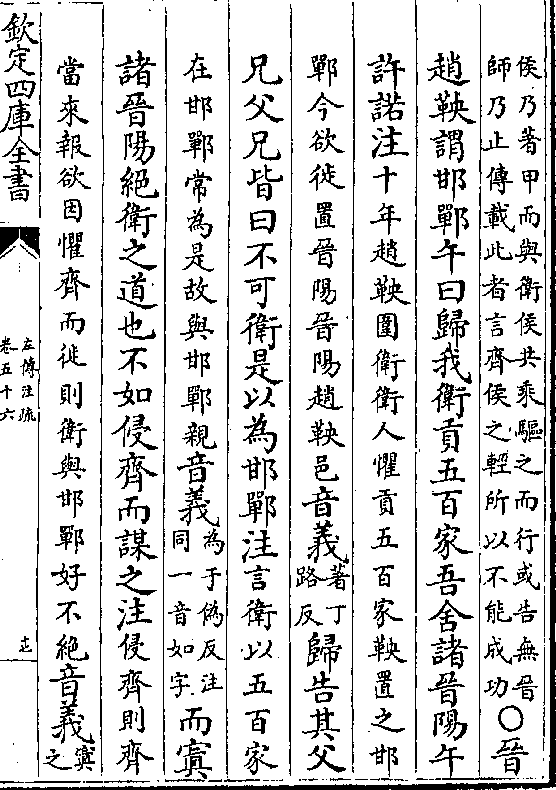 侯乃著甲而與衛侯共乘驅之而行或告無晉
師乃止傳載此者言齊侯之輕所以不能成功〇晉
趙鞅謂邯鄲午曰歸我衛貢五百家吾舍諸晉陽午
許諾注十年趙鞅圍衛衛人懼貢五百家鞅置之邯
鄲今欲徙置晉陽晉陽趙鞅邑音義著丁
路反歸告其父
兄父兄皆曰不可衛是以為邯鄲注言衛以五百家
在邯鄲常為是故與邯鄲親音義為于偽反注
同一音如字而寘
諸晉陽絕衛之道也不如侵齊而謀之注侵齊則齊
當來報欲因懼齊而徙則衛與邯鄲好不絕音義寘
之
欽定四庫全書
左傳注疏
卷五十六